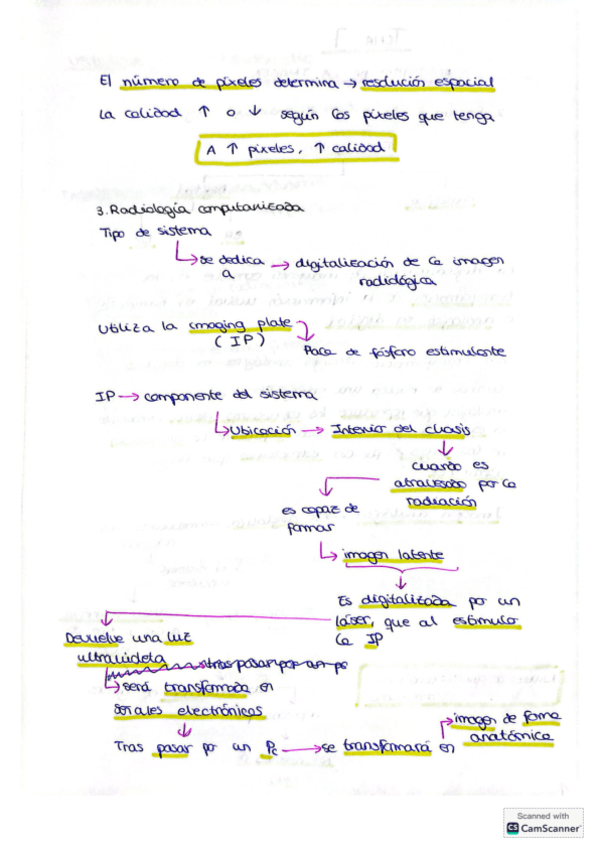 El número de píxeles determina → resolución espacial
La calidad ↑ o ↓ según los píxeles que tenga
A ↑ píxeles, ↑ calidad
3. Radiología computarizada
Tipo de sistema
se dedica → digitalización de la imagen
a radiológica
Utiliza la imaging plate
(IP)
Placa de fósforo estimulante
IP → componente del sistema
Ubicación → Interior del chasis
cuando es
atravesado por la
radiación
es capaz de
formar
imagen latente
Es digitalizada por un
láser, que al estímulo
la IP
Devuelve una luz
ultravioleta
será transformada en
señales electrónicas
Tras pasar por un Pc → se transformará en
imagen de forma
anatómica
Scanned with
CS CamScanner